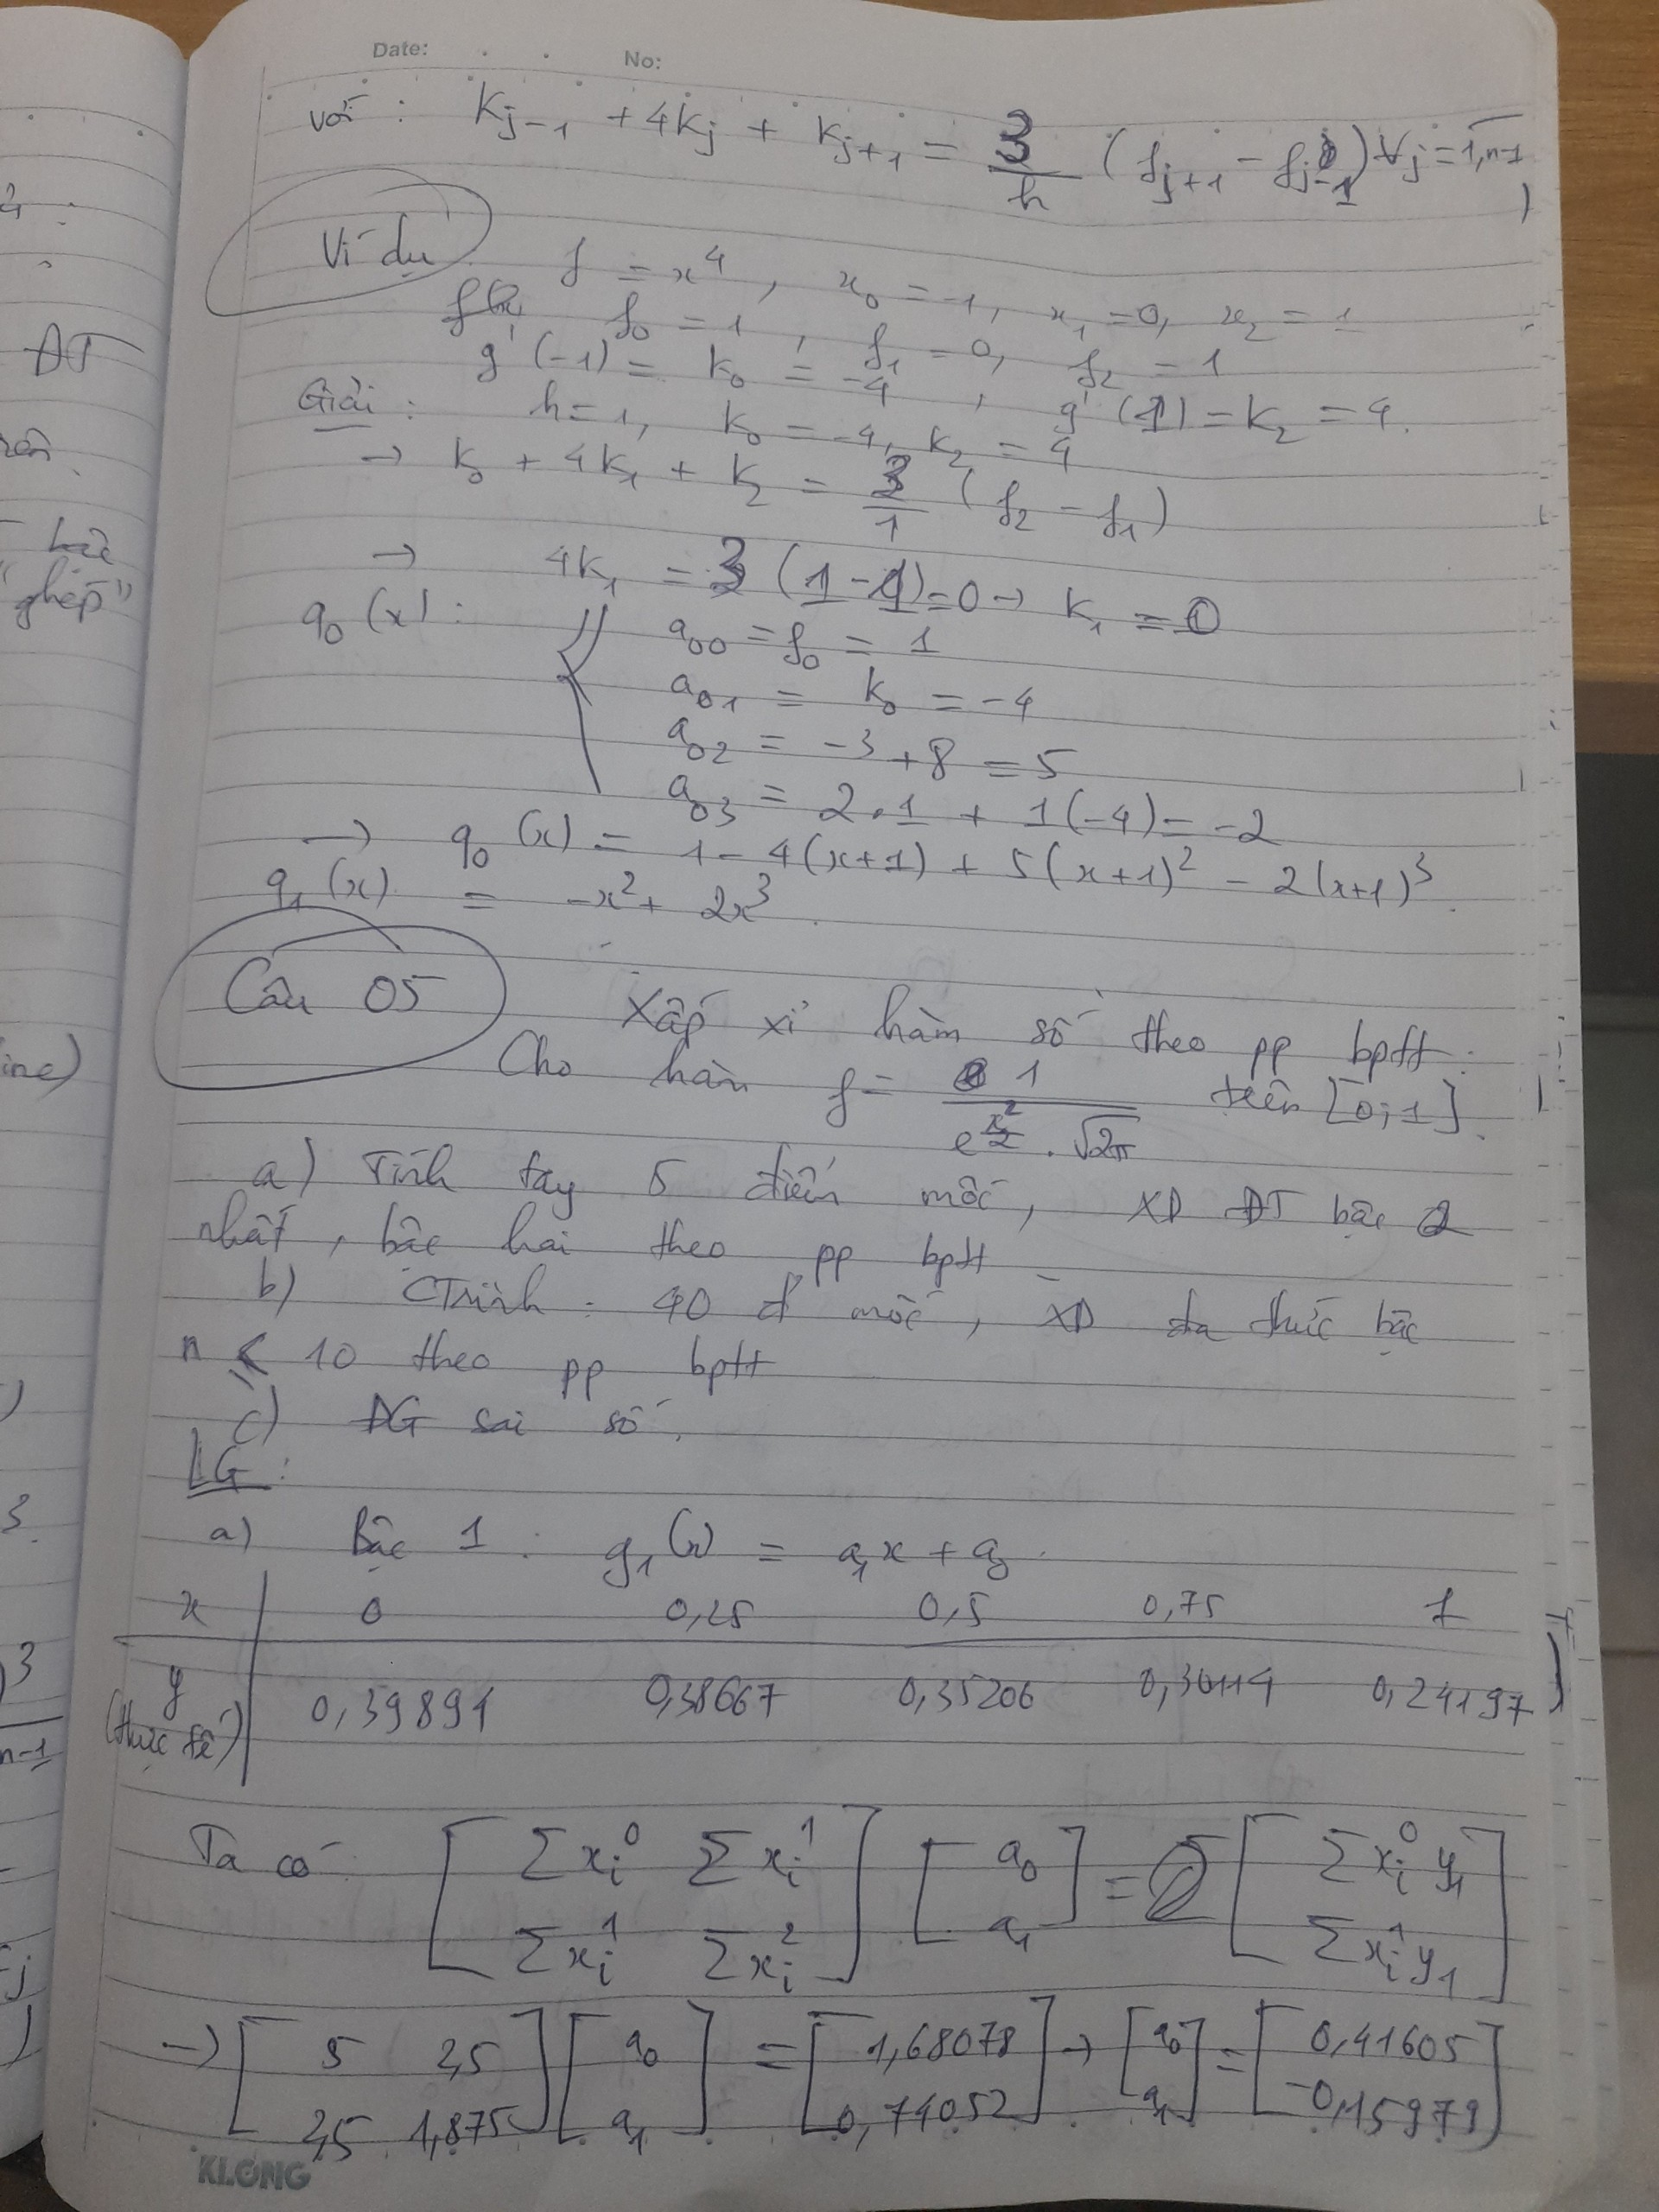 Date: . . No:
với : kj-1 + 4kj + kj+1 = 3/h (fj+1 - fj-1) ∀j = 1,n-1
Ví dụ f = x⁴, x₀ = -1, x₁ = 0, x₂ = 1
f₀ = 1, f₁ = 0, f₂ = 1
g'(-1) = k₀ = -4, g'(1) = k₂ = 4.
Giải : h = 1, k₀ = -4, k₂ = 4
→ k₀ + 4k₁ + k₂ = 3/1 (f₂ - f₁)
→ 4k₁ = 3 (1 - 1) = 0 → k₁ = 0
q₀(x) : { a₀₀ = f₀ = 1
a₀₁ = k₀ = -4
a₀₂ = -3 + 8 = 5
a₀₃ = 2.1 + 1(-4) = -2
→ q₀(x) = 1 - 4(x+1) + 5(x+1)² - 2(x+1)³
q₁(x) = -x² + 2x³.
Câu 05 Xấp xỉ hàm số theo pp bptt.
Cho hàm f = 1/(e^(x²/2) . √2π) trên [0;1].
a) Tính tay 5 điểm mốc, XD ĐT bậc
nhất, bậc hai theo pp bptt
b) CTrình : 40 đ' mốc, XD đa thức bậc
n ≤ 10 theo pp bptt
c) ĐG sai số.
LG :
a) Bậc 1 : g₁(x) = a₁x + a₀.
x | 0 0,25 0,5 0,75 1
y (thực tế) | 0,39894 0,38667 0,35206 0,30114 0,24197
Ta có [Σxi⁰ Σxi¹; Σxi¹ Σxi²] [a₀; a₁] = [Σxi⁰y₁; Σxi¹y₁]
→ [5 2,5; 2,5 1,875] [a₀; a₁] = [1,68078; 0,74052] → [a₀; a₁] = [0,41605; -0,15979]
KLONG
ĐT
"ghép"
n-1